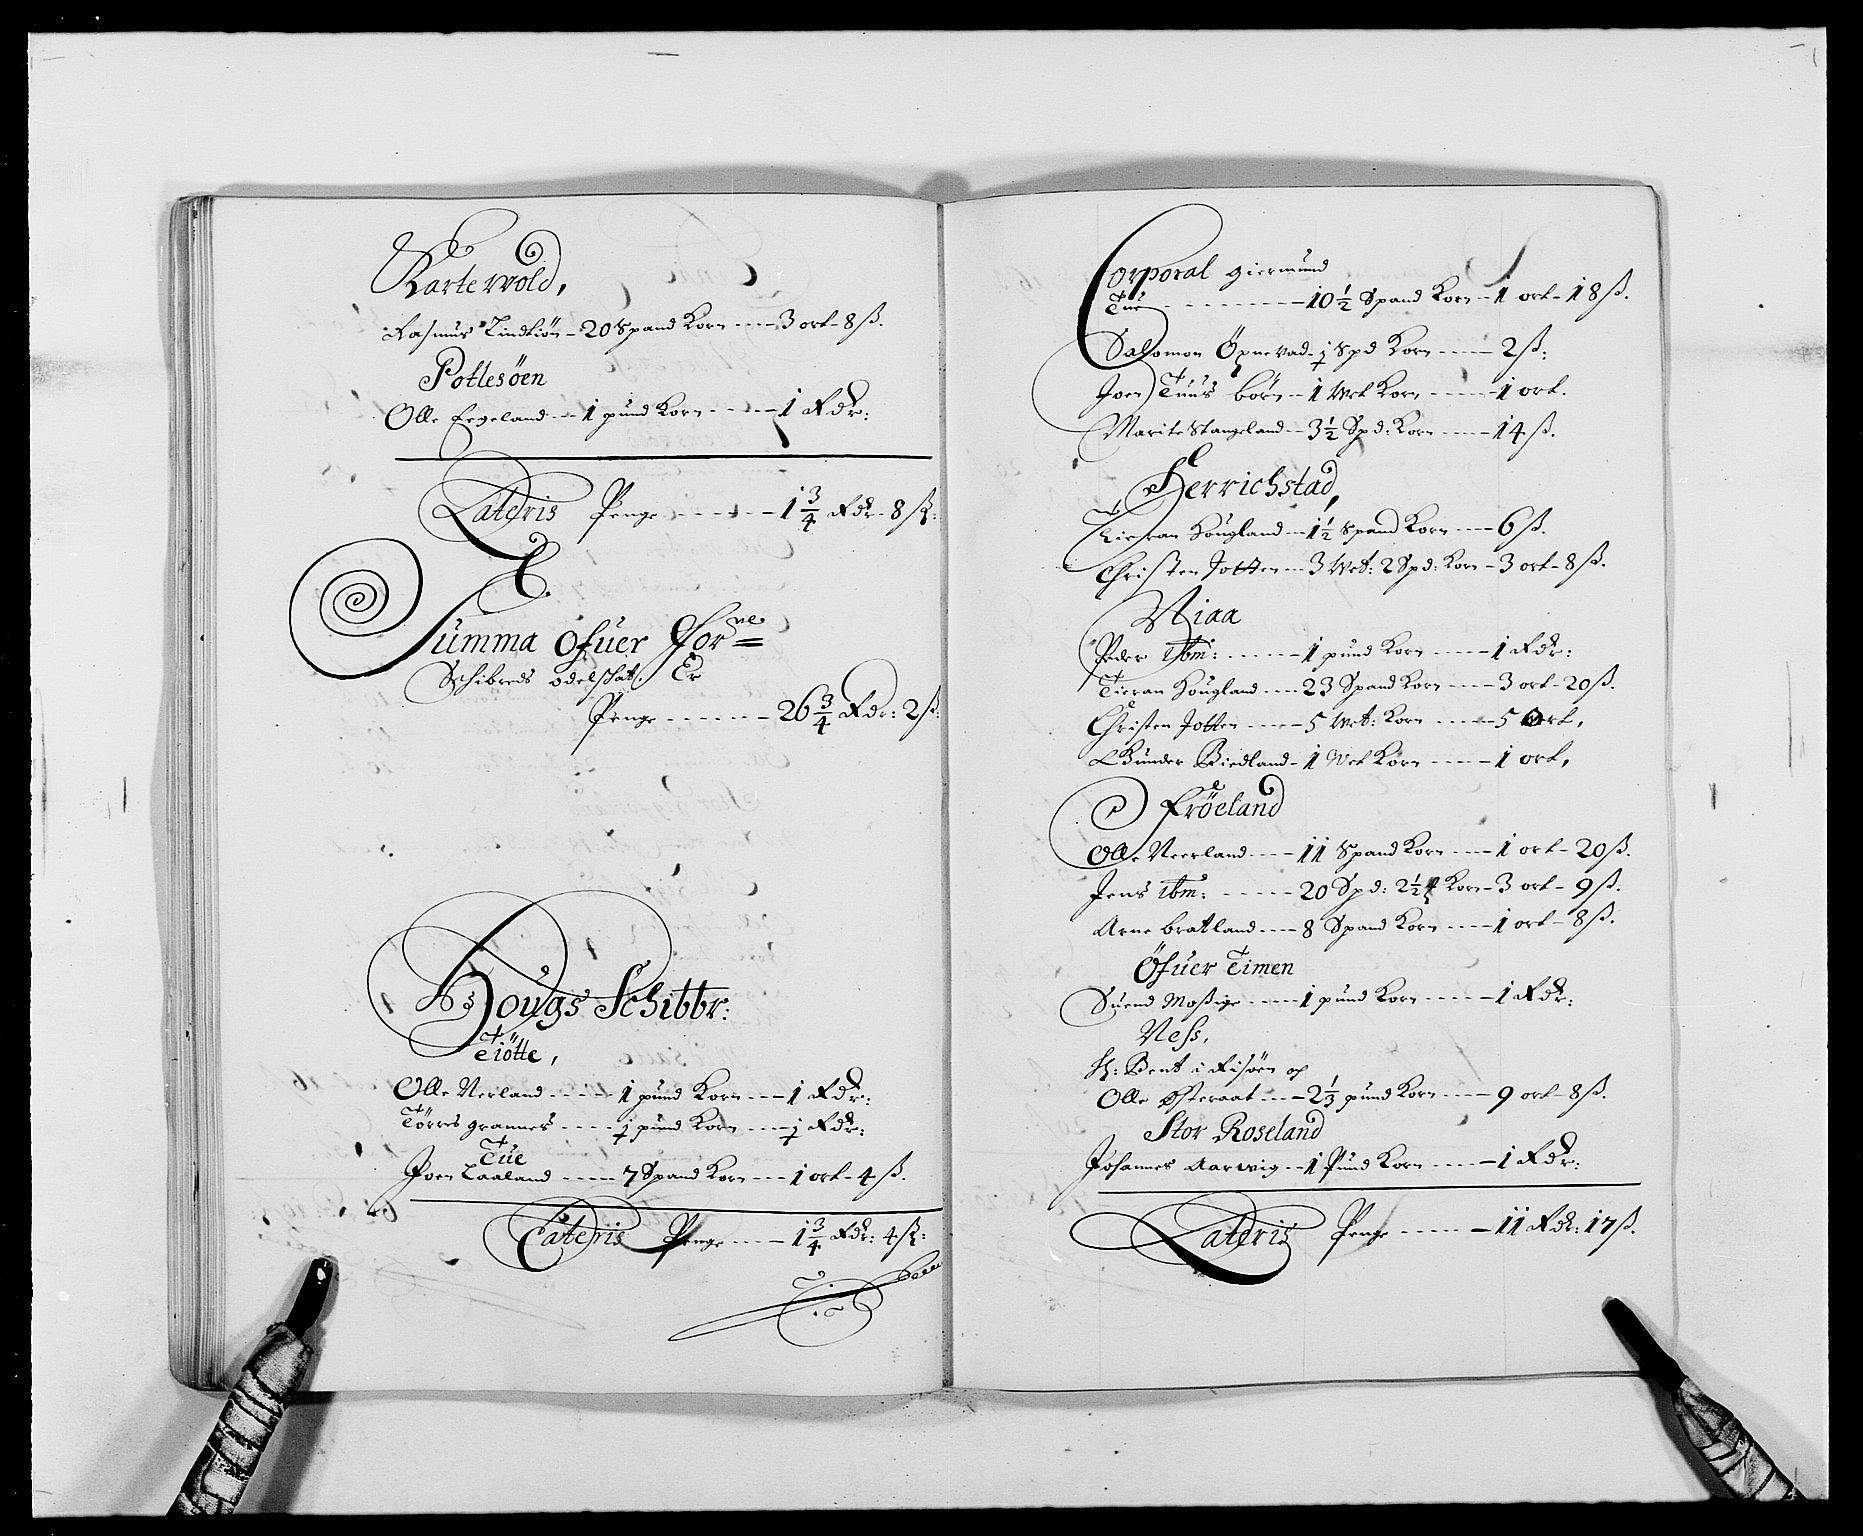 Kartevold,
Rasmus Lindtiøn - 20 Spand Korn - 3 ort - 8 ß.
Pollesöen
Olle Eegeland - 1 pund Korn - 1 Rdr:
Lateris Penge - 1 3/4 Rdr - 8 ß:
Summa Ofuer Thorve
Schibreds odelschatt. Er
Penge - 26 3/4 Rdr: 2 ß:
Hougs Schibbr:
Tiötte,
Olle Nerland - 1 pund Korn - 1 Rdr:
Törres grannes - 1/2 pund Korn - 1/2 Rdr:
Tue
Joen Laaland - 7 Spand Korn - 1 ort - 4 ß.
Lateris Penge - 1 3/4 Rdr: 4 ß:
Corporal giermund
Tue - 10 1/2 Spand Korn - 1 ort - 18 ß.
Salomon Öpnevad - 1/2 Spd Korn - 2 ß:
Joen Tuus börn - 1 Wet Korn - 1 ort.
Marite Stangeland - 3 1/2 Spd: Korn - 14 ß.
Herrichstad,
Tieran Hougland - 1 1/2 Spand Korn - 6 ß.
Christen Jotten - 3 Wet: 2 Spd: Korn - 3 ort - 8 ß.
Niaa
Peder Ibm: - 1 pund Korn - 1 Rdr:
Tieran Hougland - 23 Spand Korn - 3 ort - 20 ß.
Christen Jotten - 5 Wet: Korn - 5 Ort,
Gunder Riedland - 1 Wet Korn - 1 ort,
Fröeland
Olle Neerland - 11 Spand Korn - 1 ort - 20 ß.
Jens Ibm: - 20 Spd: 2 1/2 Korn - 3 ort - 9 ß.
Arne bratland - 8 Spand Korn - 1 ort - 8 ß.
Öfuer Timen
Suend Moßige - 1 pund Korn - 1 Rdr:
Ness,
H: Bent i Risöen og
Olle Østeraat - 2 1/3 pund Korn - 9 ort - 8 ß.
Stor Roseland
Johannes Aarwig - 1 Pund Korn - 1 Rdr:
Lateris Penge - 11 Rdr: 17 ß.